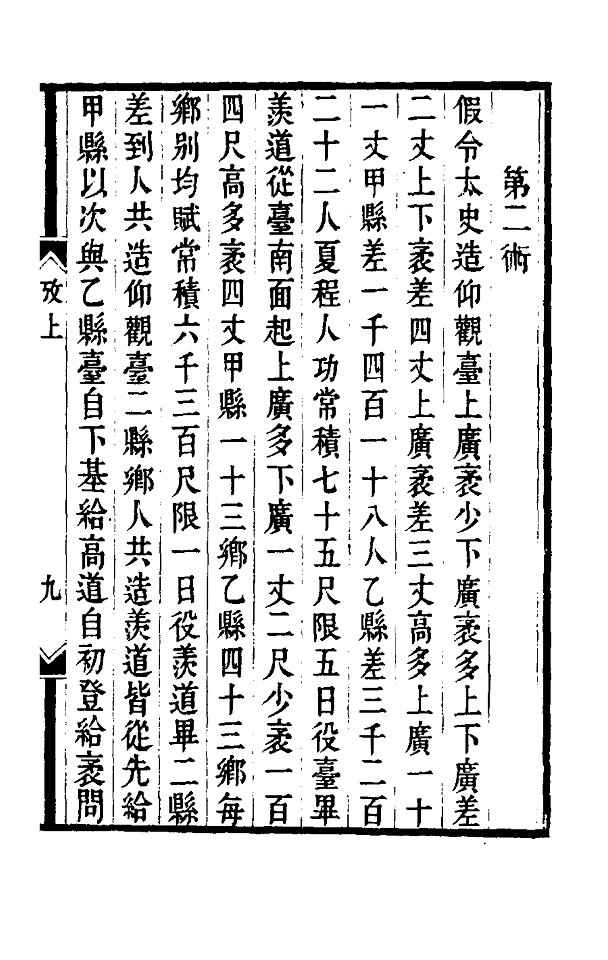 第二術
假令太史造仰觀臺上廣袤少下廣袤多上下廣差
二丈上下袤差四丈上廣袤差三丈高多上廣一十
一丈甲縣差一千四百一十八人乙縣差三千二百
二十二人夏程人功常積七十五尺限五日役臺畢
羨道從臺南面起上廣多下廣一丈二尺少袤一百
四尺高多袤四丈甲縣一十三鄉乙縣四十三鄉每
鄉別均賦常積六千三百尺限一日役羨道畢二縣
差到人共造仰觀臺二縣鄉人共造羨道皆從先給
甲縣以次與乙縣臺自下基給高道自初登給袤問
攷上
九